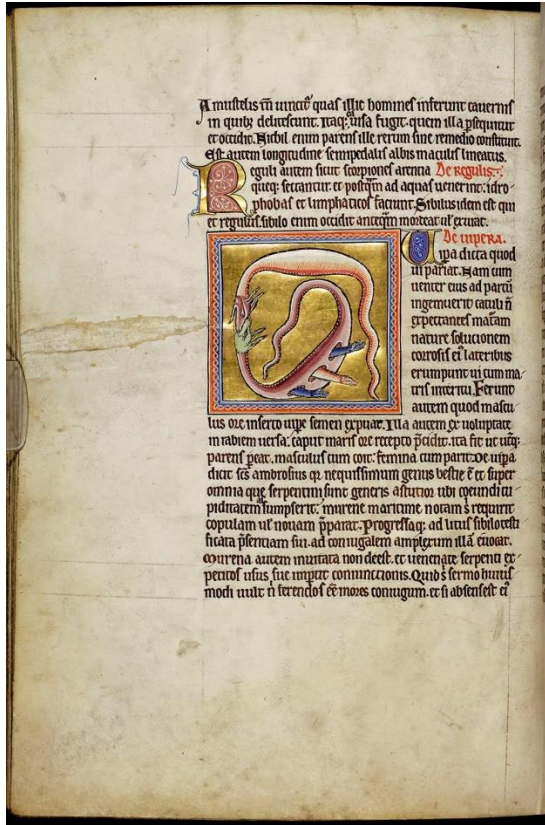 A mustelis tñ uincit̃ quas illic homines inferunt cauernis
in quib; delitescunt. Itaq; uisa fugit. quem illa ꝑsequitur
et occidit. Nichil enim parens ille rerum sine remedio constituit.
Est autem longitudine semipedalis albis maculis lineatus.
Reguli autem sicut scorpiones arentia De regulis.
queq; sectantur. et postq̃m ad aquas uenerint. idro
phobas et limphaticos faciunt. Sibilus idem est qui
et regulus. sibilo enim occidit anteq̃m mordeat ul' exurat.
De uipera.
Uipa dicta quod
ui pariat. Nam cum
uenter eius ad partũ
ingemuerit catuli ñ
expectantes maturam
nature solucionem
corrosis ei' lateribus
erumpunt ui cum ma
tris interitu. Ferunt
autem quod mascu
lus ore inserto uipe semen expuat. Illa autem ex uoluptate
in rabiem uersa. caput maris ore recepto p̃cidit. ita fit ut utq;
parens p̃eat. masculus cum coit. femina cum parit. De uip̃a
dicit sc̃s ambrosius qr nequissimum genus bestie ẽ et super
omnia que serpentini sunt generis astutior. ubi coeundi cu
piditatem sumpserit. murene maritime notam s' requirit
copulam ul' nouam p̃parat. Progressaq; ad litus sibilo testi
ficata p̃sentiam sui. ad coniugalem amplexum illã euocat.
Murena autem inuitata non deest. et uenenate serpenti ex
petitos usus sue impertit coniunctionis. Quid s' sermo huius
modi uult ñ ferendos eẽ mores coniugum. et si absens est ei'